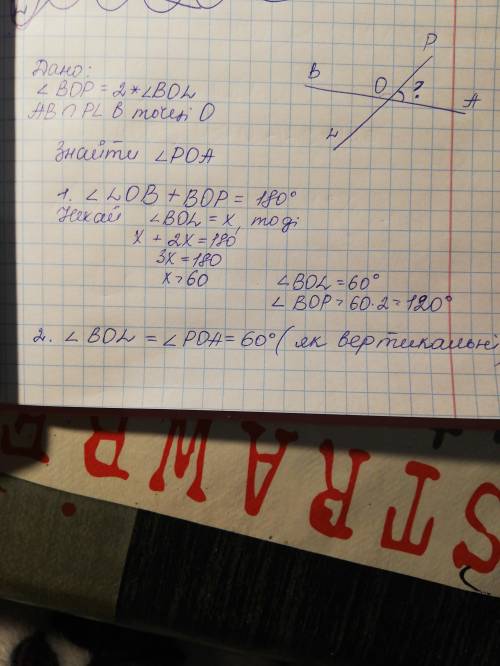 Дано:
∠BOP = 2*∠BOL
AB ∩ PL в точці O
Знайти ∠POA
B
P
O
?
A
L
1. ∠LOB + BOP = 180°
Нехай ∠BOL = x, тоді
x + 2x = 180
3x = 180
x = 60
∠BOL = 60°
∠BOP = 60·2 = 120°
2. ∠BOL = ∠POA = 60° (як вертикальні)
STRAWBE